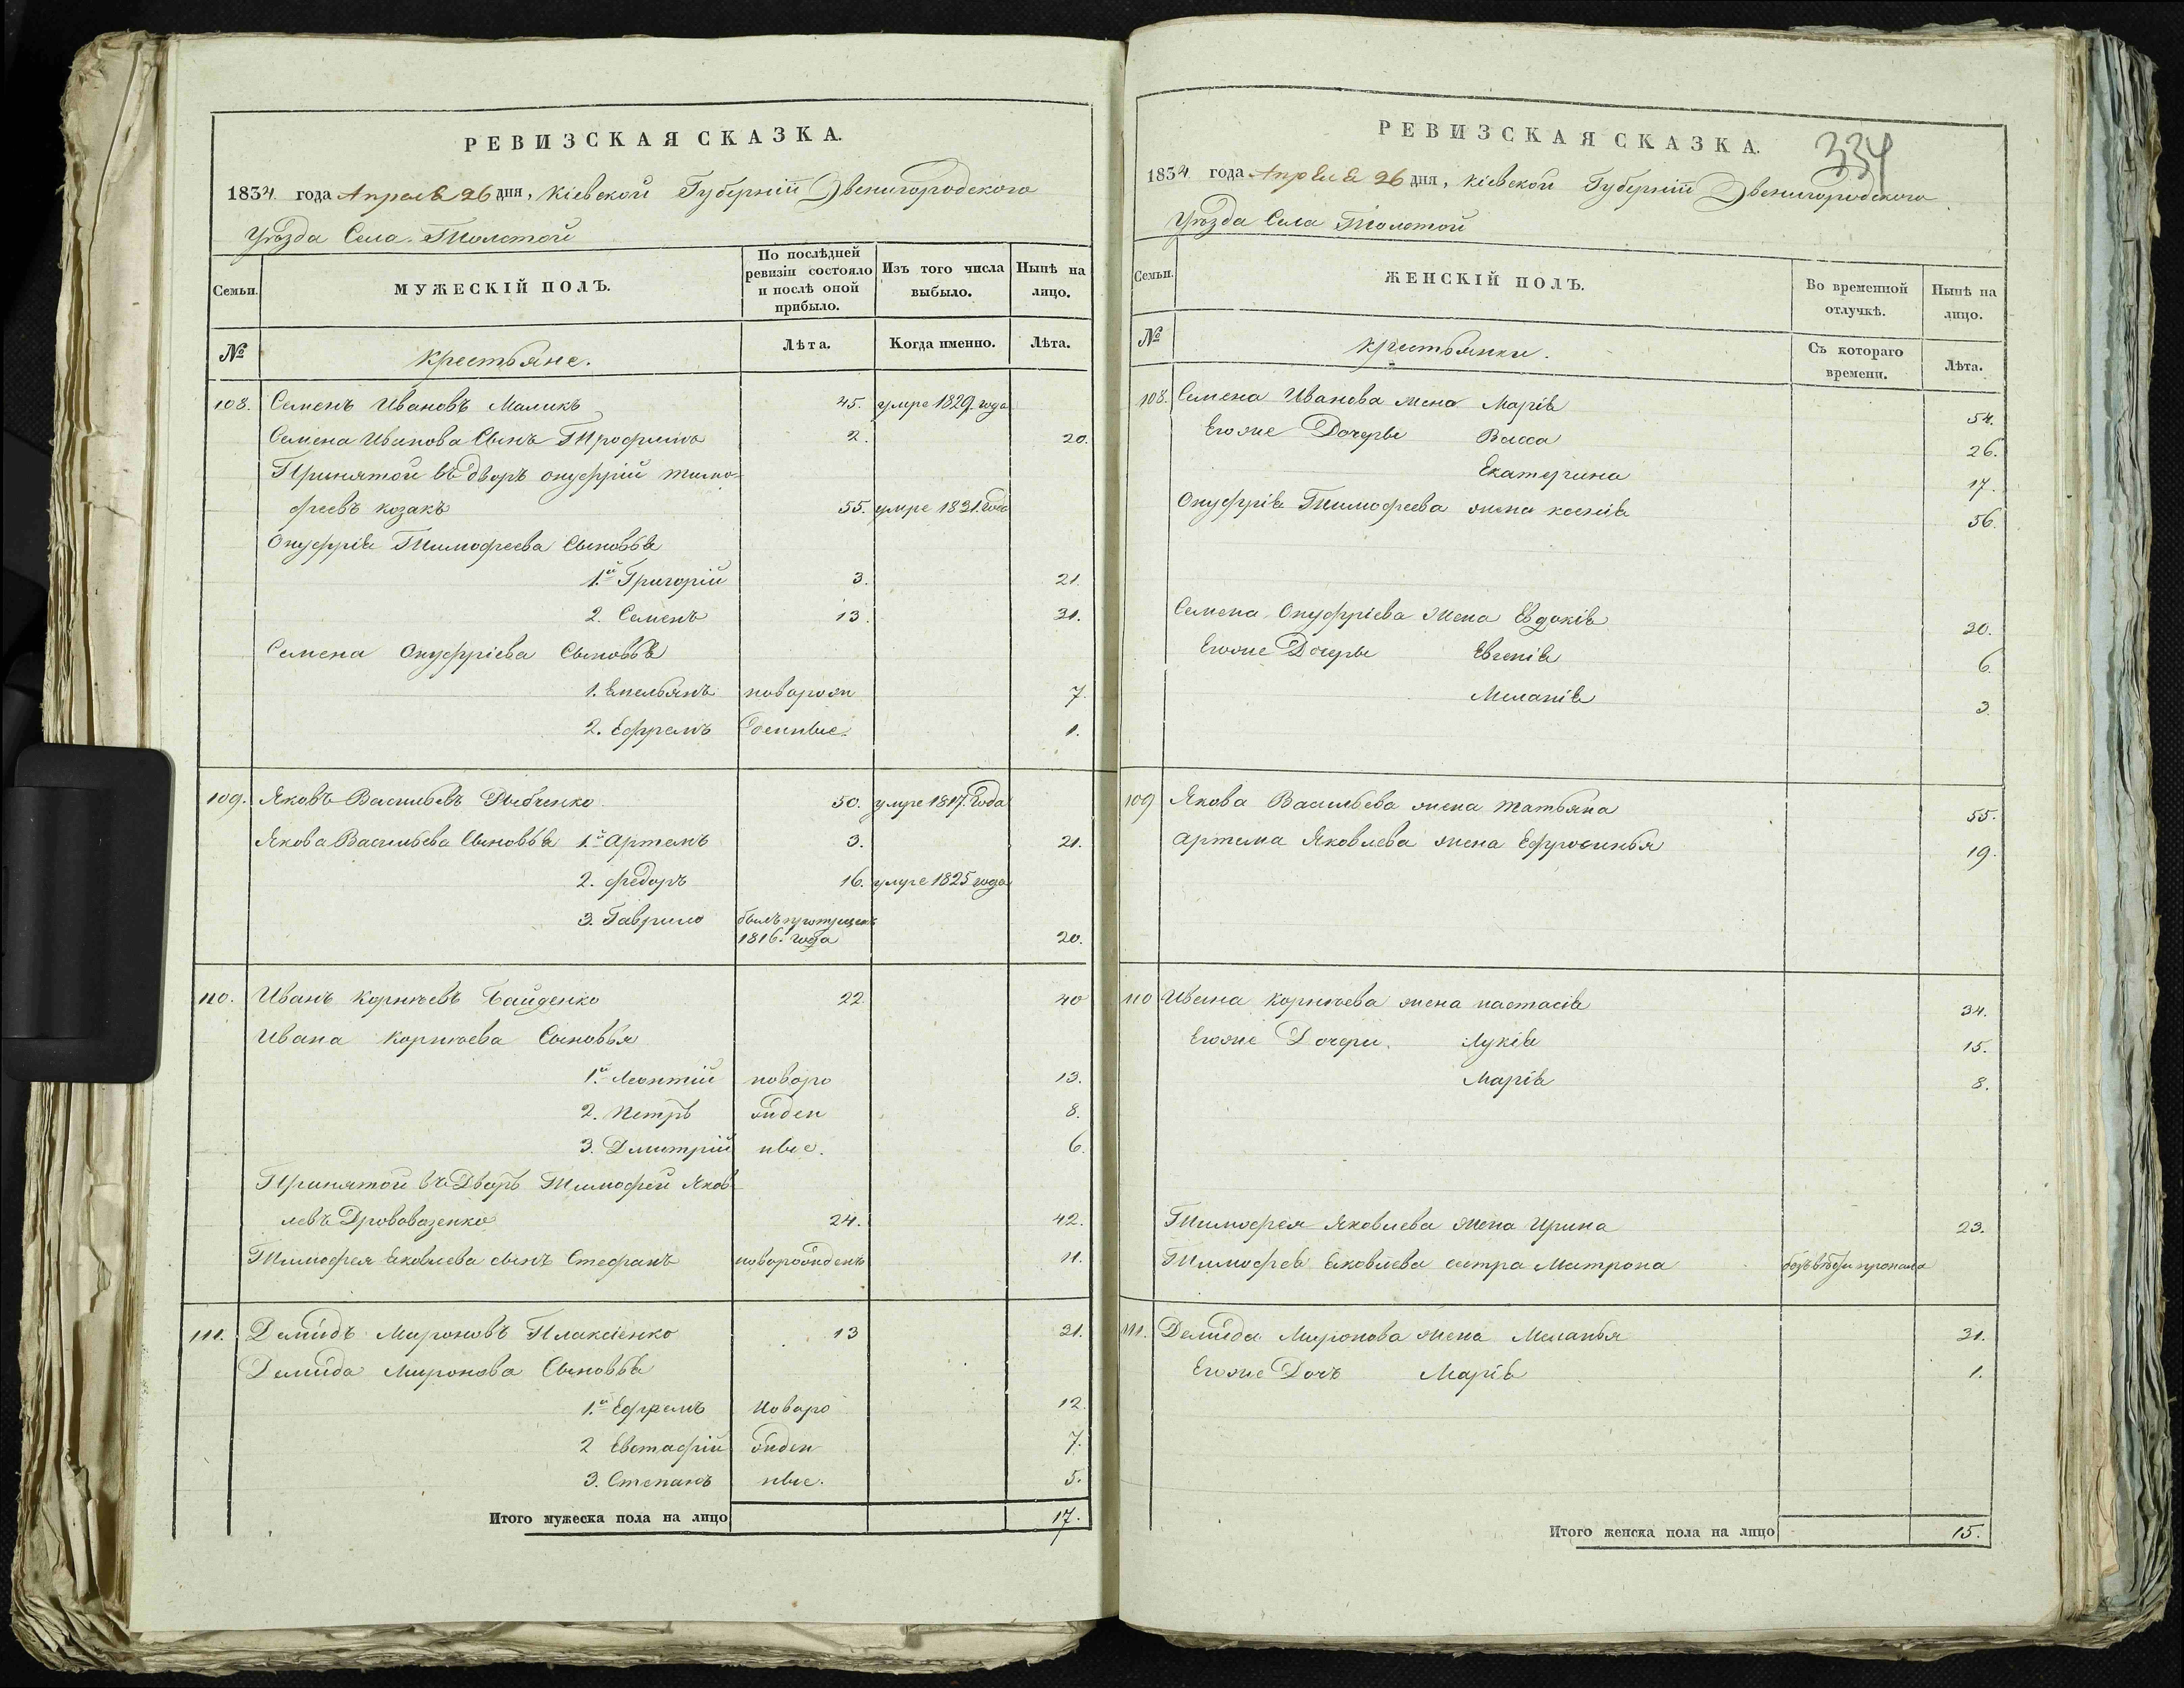 РЕВИЗСКАЯ СКАЗКА.
1834 года Апреля 26 дня, Кіевской Губерніи Звенигородского
Уѣзда Села Толстой
Семьи.
МУЖЕСКІЙ ПОЛЪ.
По послѣдней ревизіи состояло и послѣ оной прибыло.
Изъ того числа выбыло.
Нынѣ на лицо.
№
Крестьяне.
Лѣта.
Когда именно.
Лѣта.
108. Семенъ Ивановъ Маликъ 45. умре 1829. года
Семена Иванова Сынъ Трофимъ 2. 20.
Принятой въ дворъ онуфрій тимо-
феевъ козакъ 55. умре 1821. года
Онуфрія Тимофеева Сыновья
1.й Григорій 3. 21.
2. Семенъ 13. 31.
Семена Онуфріева Сыновья
1. Емельянъ новорож 7.
2. Ефремъ денные. 1.
109. Яковъ Васильевъ Рыбченко 50. умре 1817. года
Якова Васильева Сыновья 1.й Артемъ 3. 21.
2. федоръ 16. умре 1825 года
3. Гаврило былъ пропущенъ
1816. года 20.
110. Иванъ Корнѣевъ Байденко 22. 40
Ивана Корнѣева Сыновья
1.й Леонтій новоро 13.
2. Петръ жден 8.
3. Дмитрій ные. 6.
Принятой въ Дворъ Тимофей Яков-
левъ Дрововозенко 24. 42.
Тимофея Яковлева сынъ Стефанъ новорожденъ 11.
111. Демидъ Мироновъ Плаксіенко 13 31.
Демида Миронова Сыновья
1.й Ефремъ Новоро 12.
2 Евстафій жден 7.
3. Степанъ ные. 5.
Итого мужеска пола на лицо 17.
334
РЕВИЗСКАЯ СКАЗКА.
1834 года Апреля 26 дня, Кіевской Губерніи Звенигородского
Уѣзда Села Толстой
Семьи.
ЖЕНСКІЙ ПОЛЪ.
Во временной отлучкѣ.
Нынѣ на лицо.
№
Крестьянки.
Съ котораго времени.
Лѣта.
108. Семена Иванова жена Марія 54.
Егоже Дочеры Васса 26.
Екатерина 17.
Онуфрія Тимофеева жена ксенія 56.
Семена Онуфріева жена Евдокія 30.
Егоже Дочеры Евгенія 6.
Меланія 3.
109 Якова Васильева жена татьяна 55.
Артема Яковлева жена Ефросинья 19.
110 Ивана Корнѣева жена настасія 34.
Егоже Дочери. Лукія 15.
Марія 8.
Тимофея Яковлева жена Ирина 23.
Тимофея Яковлева сестра Матрона безъ вѣсти пропала
111. Демида Миронова жена Меланья 31.
Егоже Дочъ Марія 1.
Итого женска пола на лицо 15.